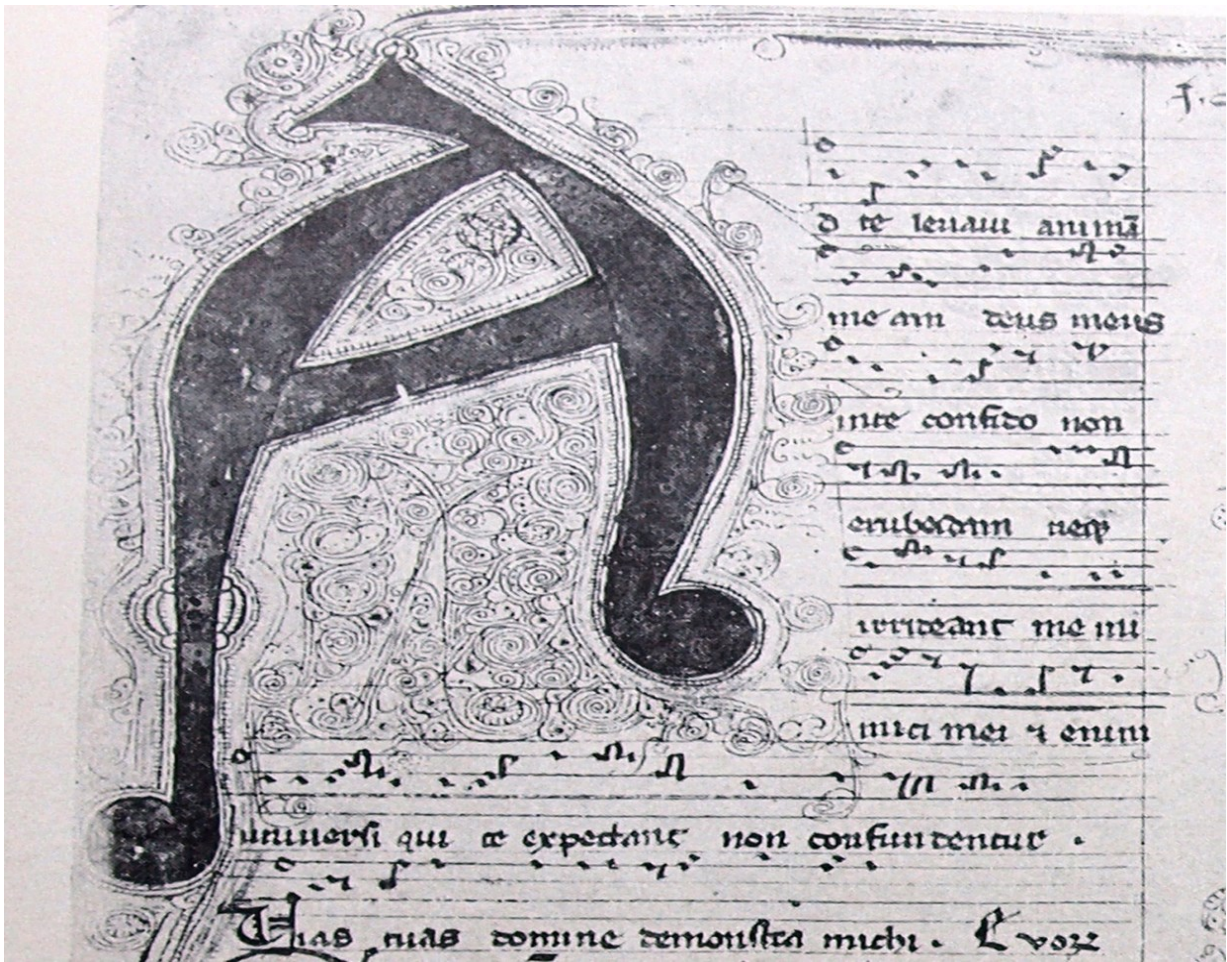 A
d te leuaui animā
meam deus meus
inte confido non
erubescam neqꝫ
irrideant me ini
mici mei ⁊ enim
uniuersi qui te expectant non confundentur .
Vias tuas domine demonstra michi .